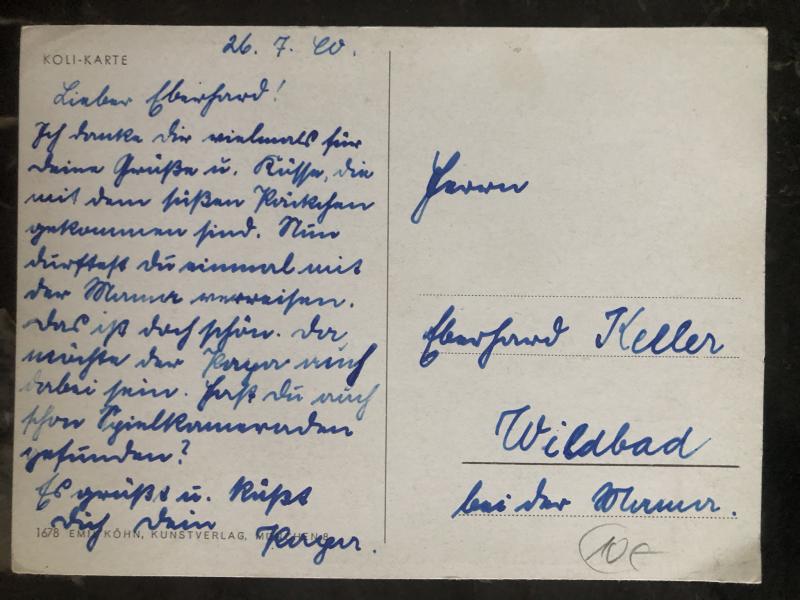 26. 7. 40.
KOLI-KARTE
Lieber Eberhard!
Ich danke Dir vielmals für
Deine Grüße u. Küsse, die
mit dem süßen Päckchen
gekommen sind. Nun
durftest Du einmal mit
der Mama verreisen.
Das ist doch schön. Da
möchte der Papa auch
dabei sein. Hast Du auch
schon Spielkameraden
gefunden?
Es grüßt u. küßt
Dich Dein
Papa.
1678 EMIL KÖHN, KUNSTVERLAG, MÜNCHEN 8
Herrn
Eberhard Keller
Wildbad
bei der Mama.
10€